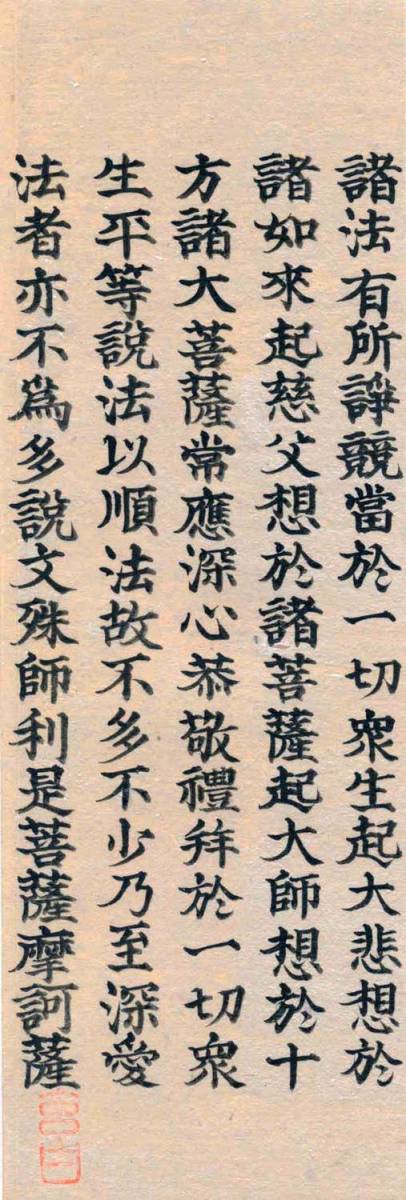 諸法有所諍競當於一切衆生起大悲想於
諸如來起慈父想於諸菩薩起大師想於十
方諸大菩薩常應深心恭敬禮拜於一切衆
生平等說法以順法故不多不少乃至深愛
法者亦不爲多說文殊師利是菩薩摩訶薩